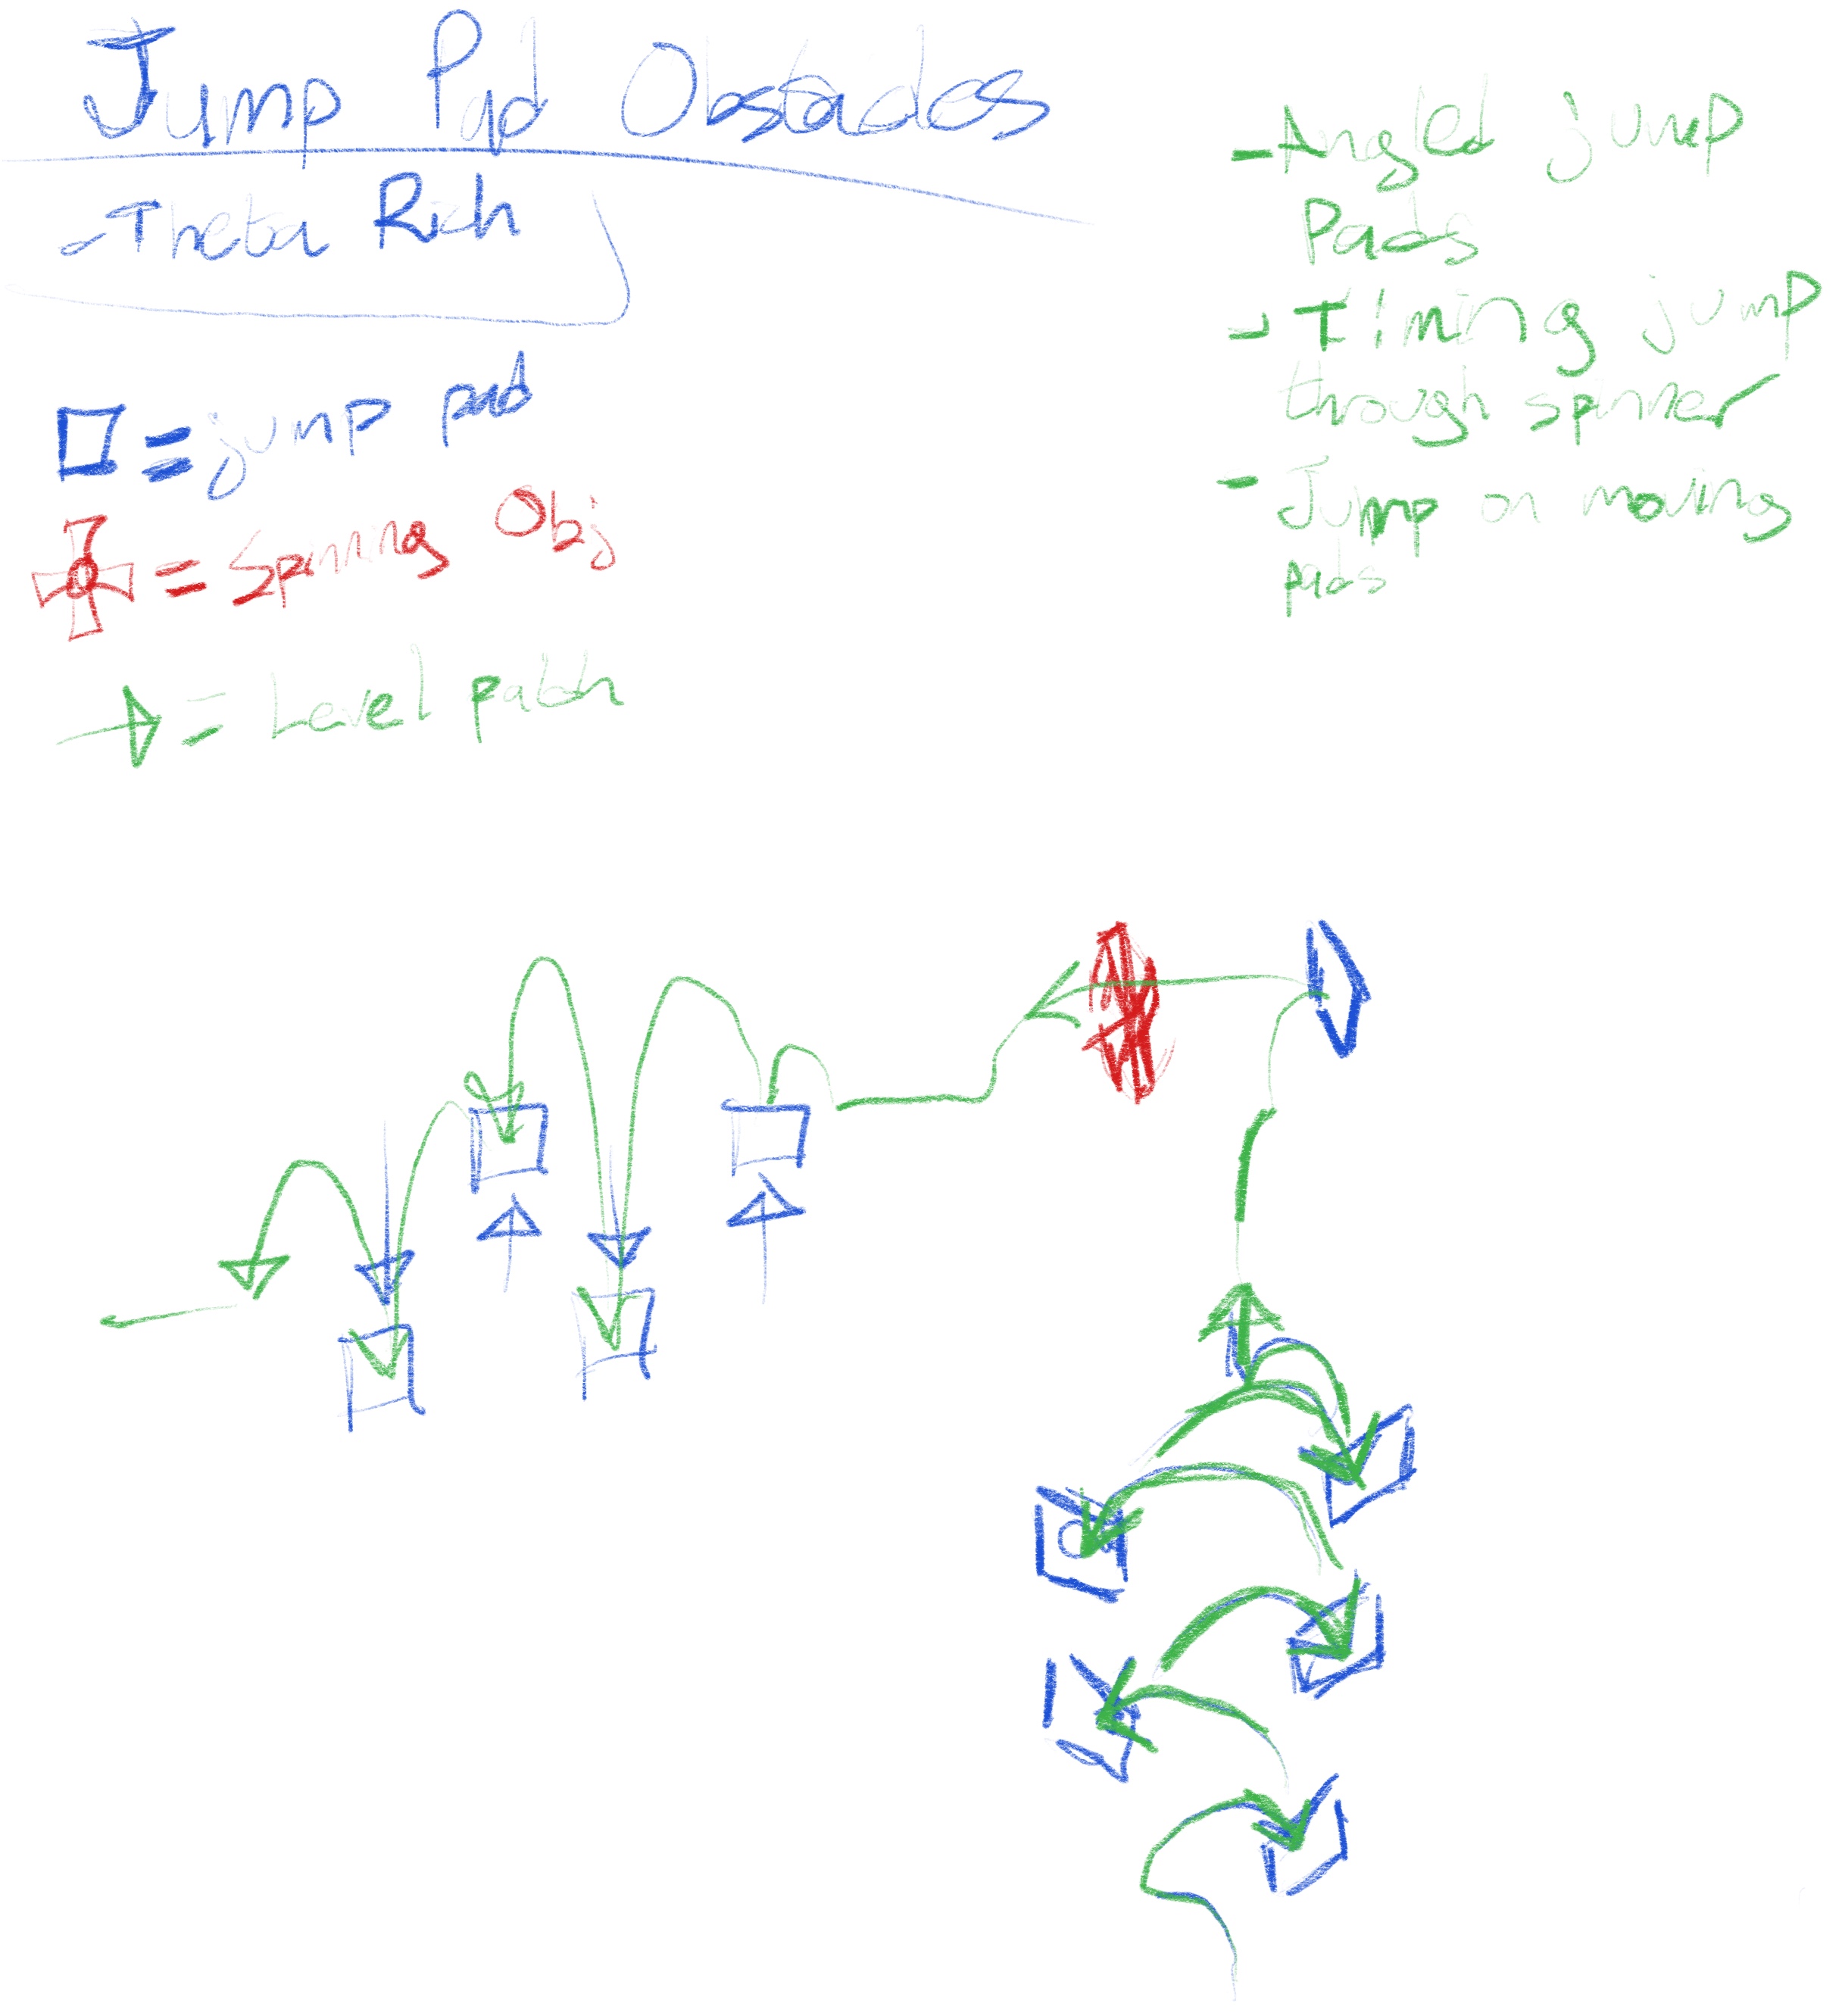 Jump Pad Obstacles
- Theta Rich
= jump pad
= Spinning Obj
= Level path
- Angled jump
Pads
- Timing jump
through spinner
- Jump on moving
pads